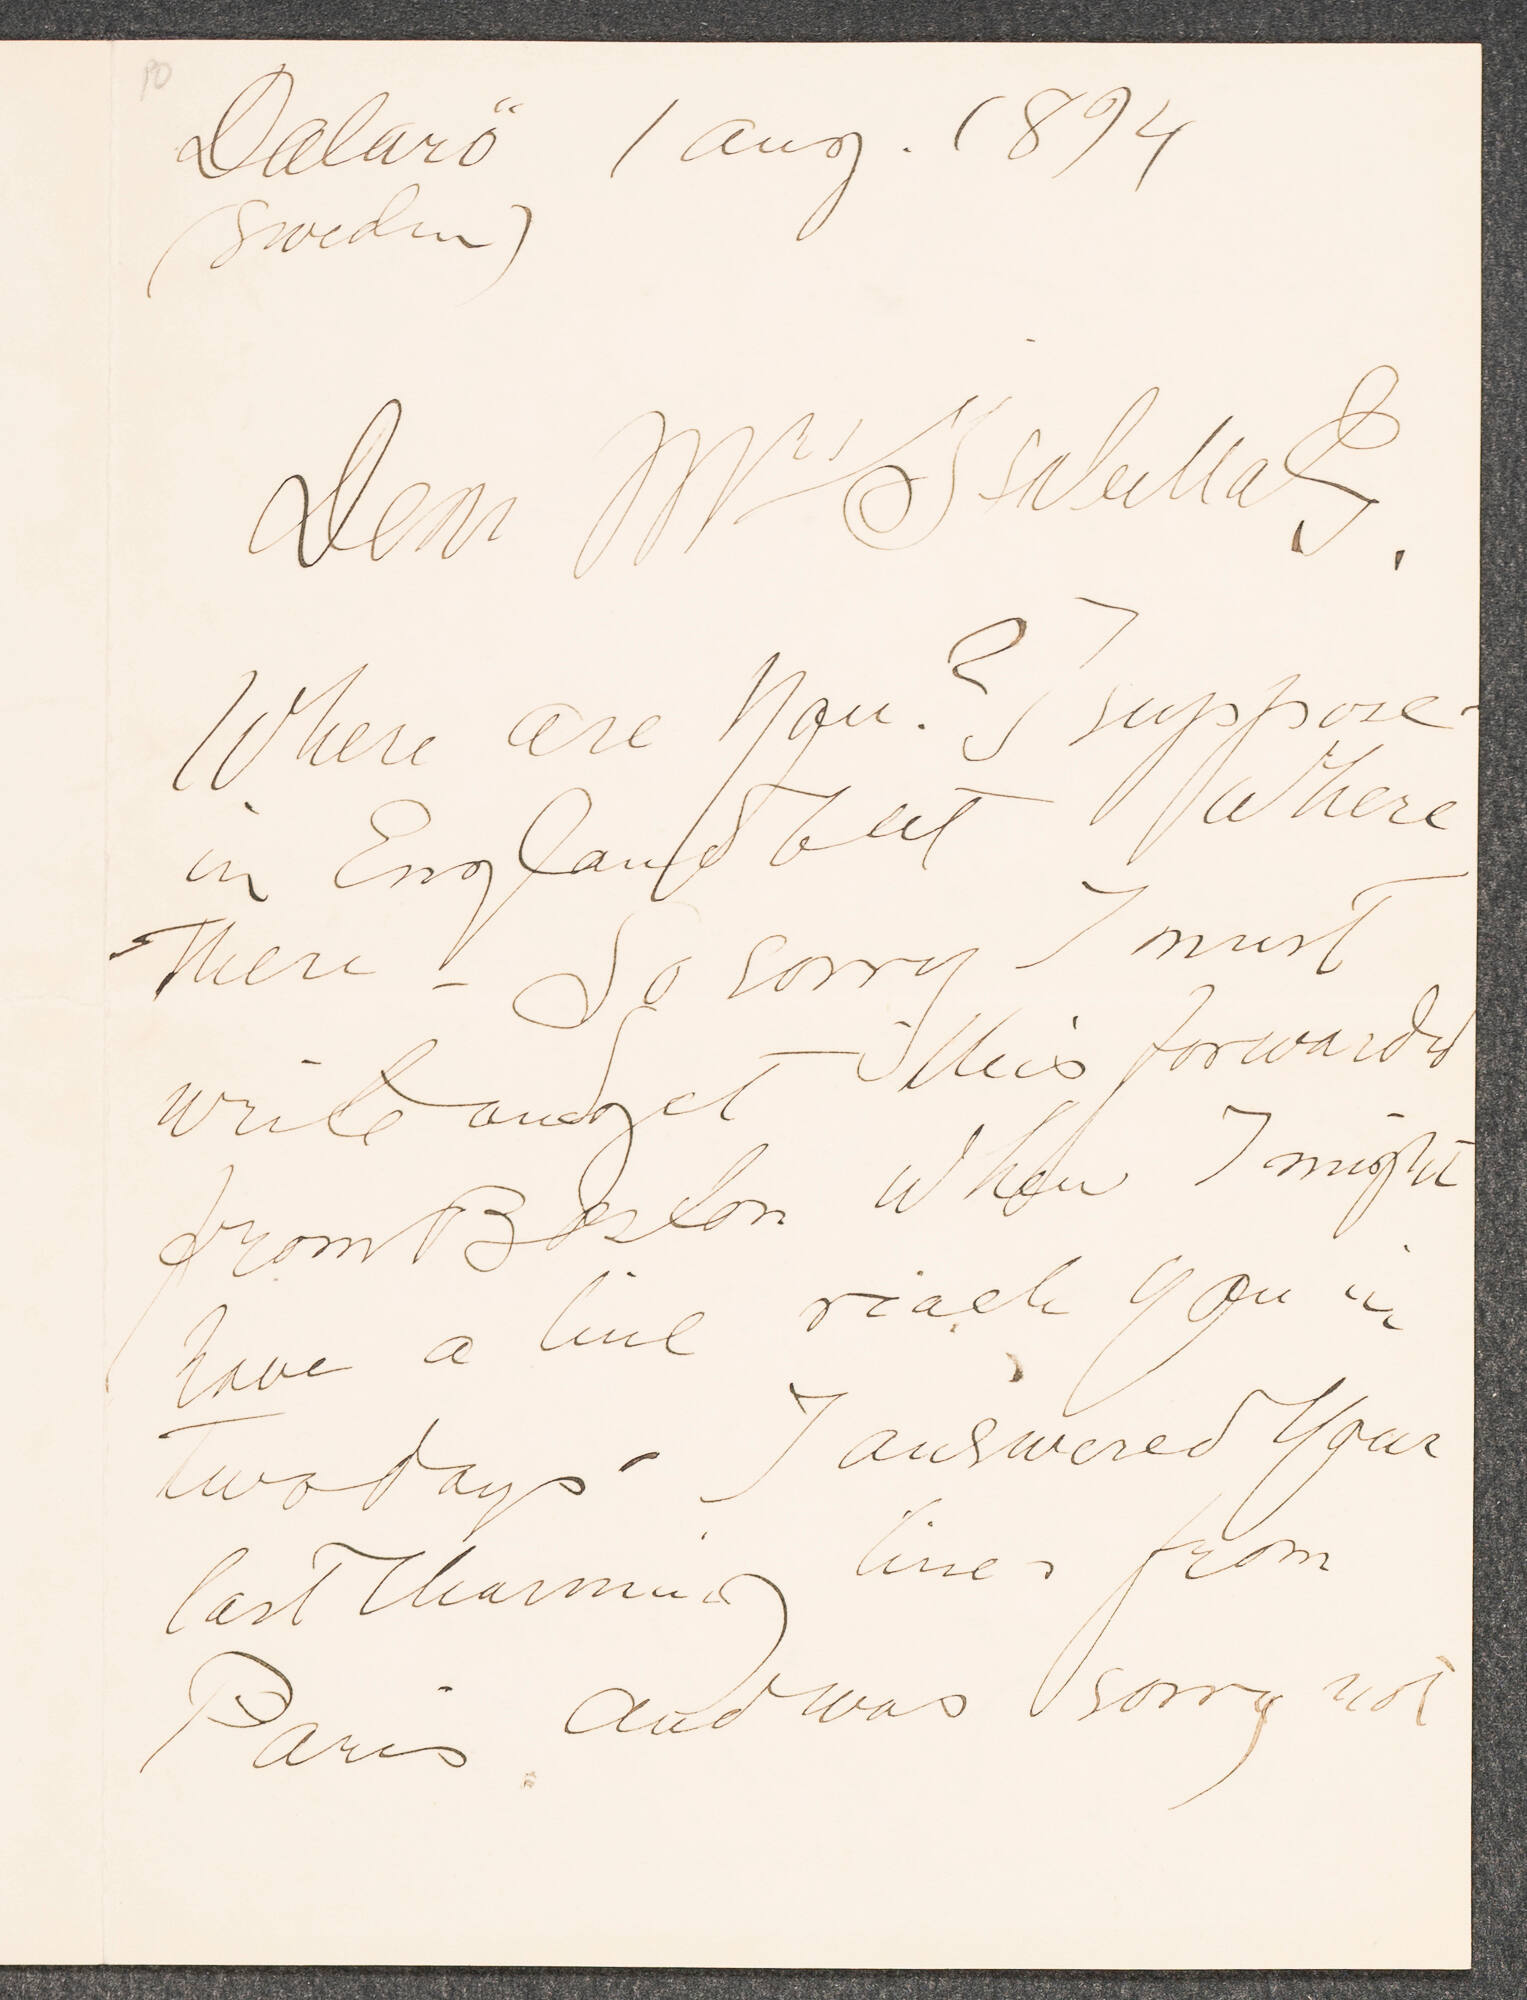 Dalarö 1 aug. 1894
(Sweden)
Dear Mrs Isabella G.
Where are you? I suppose
in England but where
there – So sorry I must
write and get this forwarded
from Boston when I might
have a line reach you in
two days. I answered your
last charming lines from
Paris and was sorry not